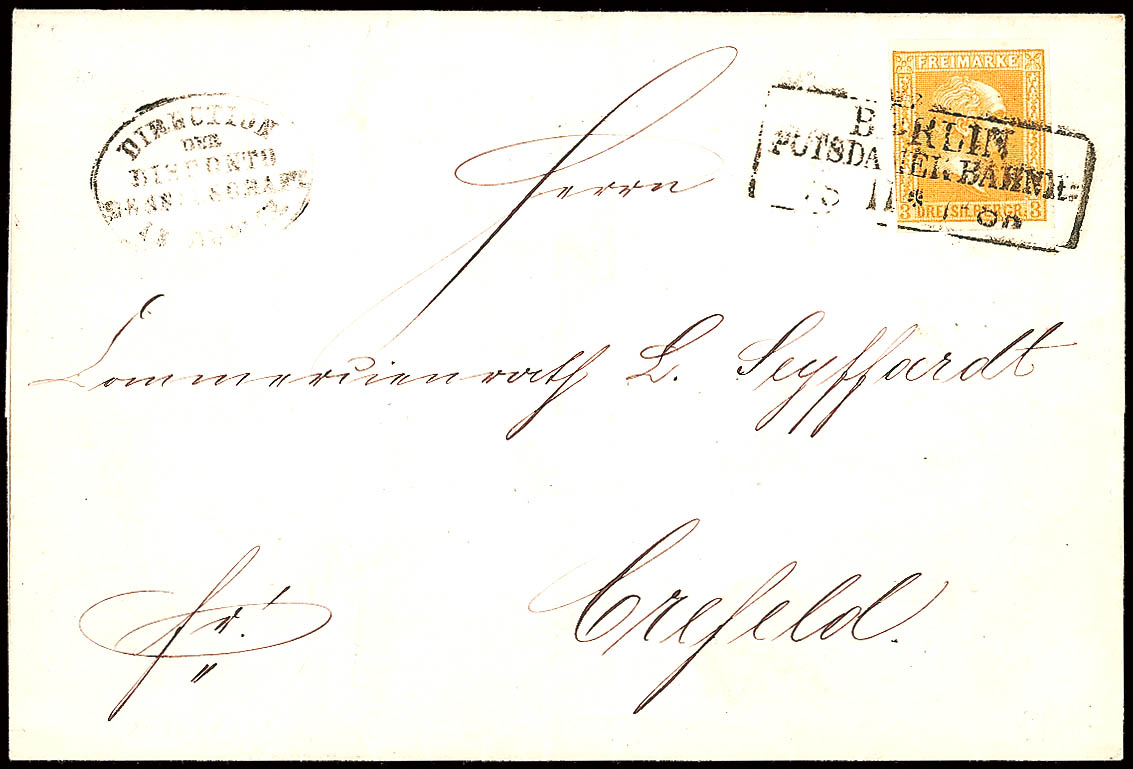 DIRECTION
DER
DISCONTO
GESELLSCHAFT
FREIMARKE
3 DREI SILBERGR. 3
BERLIN
POTSDAMER BAHNH:
Herrn
Commercienrath L. Seyffardt
Crefeld.
fr.